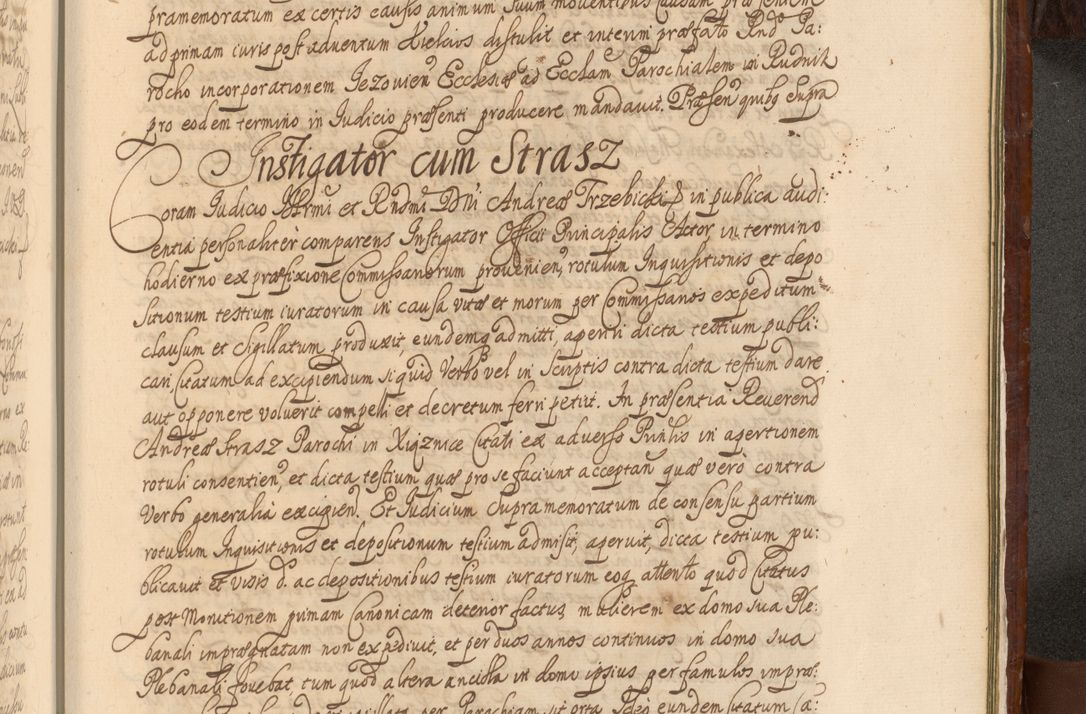 pramemoratum ex certis causis animum suum moventibus causam præsentem
ad primam iuris post adventum Kielcios distulit et interim præfato Rnd Pa:
rocho incorporationem Jezovien Ecclesiæ ad Ecclam Parochialem in Rudnik
pro eodem termino in Judicio præsenti producere mandavit. Præsen quibq supra
Instigator cum Strasz
Coram Judicio Illrmi et Rndmi Dni Andreæ Trzebicki in publica audi:
entia personaliter comparens Instigator Officii Principalis Actor in termino
hodierno ex præfixione Commissariorum provenien, rotulum Inquisitionis et depo
sitionum testium iuratorum in causa vitæ et morum per Commissarios expeditum
clausum et sigillatum produxit, eundemq admitti, aperiri dicta testium publi:
cari citatum ad excipiendum si quid verbo vel in scriptis contra dicta testium dare
aut opponere voluerit compelli et decretum ferri petiit. In præsentia Reverend
Andreæ Strasz Parochi in Xiqznice Citati ex adverso Prinlis in apertionem
rotuli consentien, et dicta testium quæ pro se faciunt acceptan quæ verò contra
verbo generalia excipien. Et Judicium supramemoratum de consensu partium
rotulum Inquisitionis et depositionum testium admisit, aperuit, dicta testium pu:
blicavit et visis d. ac depositionibus testium iuratorum eoq attento quod Citatus
post Monitionem primam Canonicam deterior factus, mulierem ex domo sua Ple:
banali imprægnatam non expedivit, et per duos annos continuos in domo sua
Plebanali fovebat, tum quod altera ancilla in domo ipsius per famulos impræ:
per Parochiam sit orta Ideo eundem Citatum Ca: